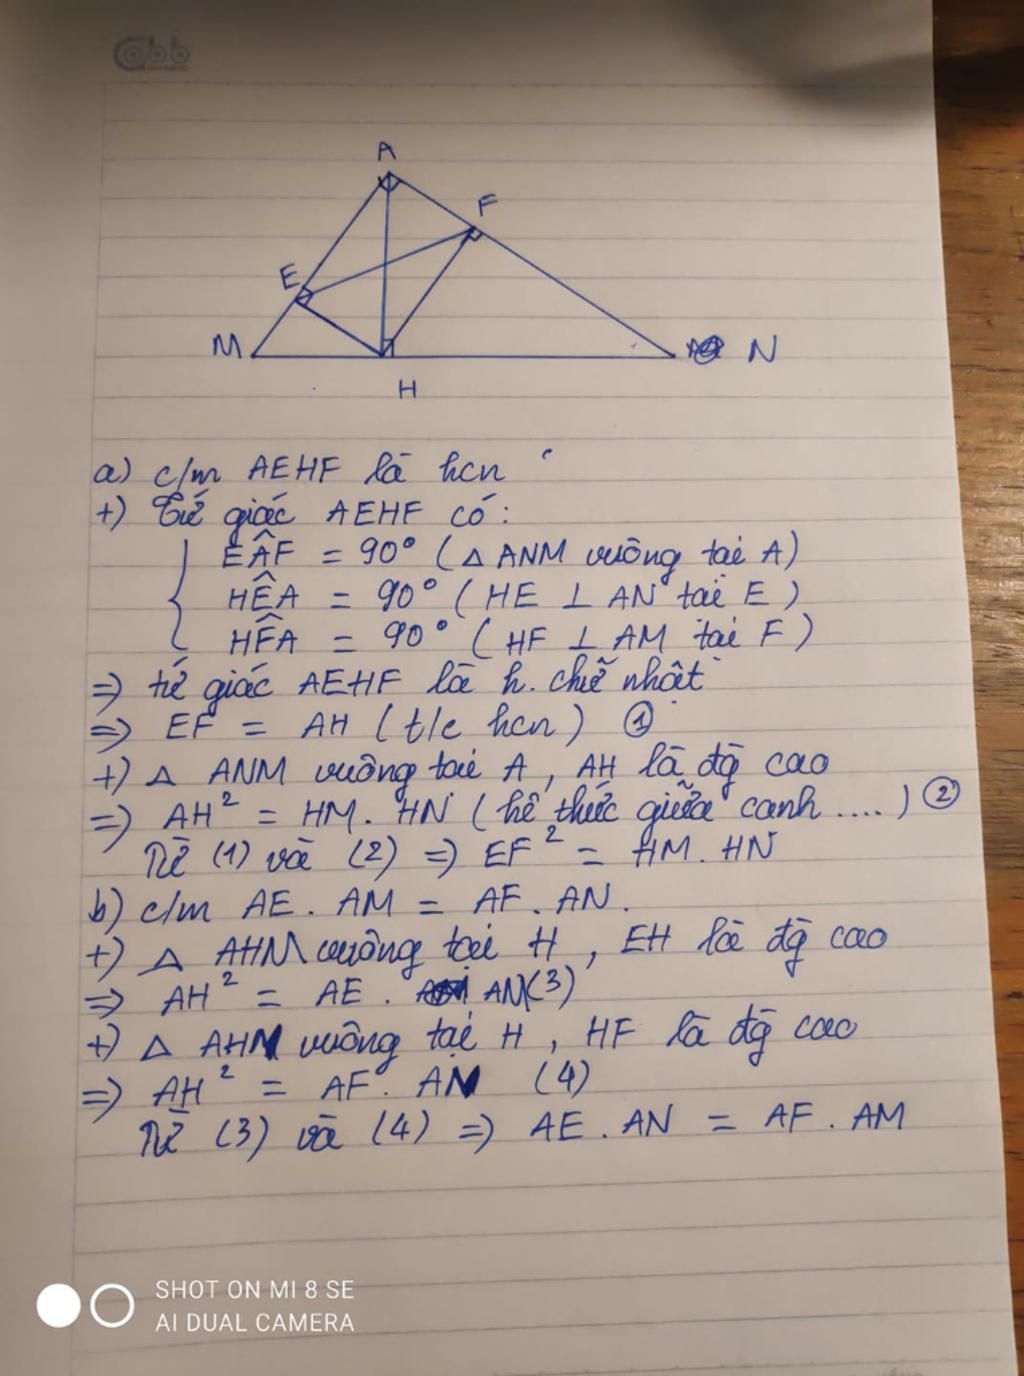 Cabb
A
F
E
M
N
H
a) c/m AEHF là hcn
+) Tứ giác AEHF có:
EÂF = 90° (△ ANM vuông tại A)
HÊA = 90° (HE ⊥ AN tại E)
HF̂A = 90° (HF ⊥ AM tại F)
=> tứ giác AEHF là h. chữ nhật
=> EF = AH (t/c hcn) ①
+) △ ANM vuông tại A, AH là đg cao
=> AH² = HM. HN (hệ thức giữa cạnh ....) ②
Từ (1) và (2) => EF² = HM. HN
b) c/m AE. AM = AF. AN.
+) △ AHM vuông tại H, EH là đg cao
=> AH² = AE. AN (3)
+) △ AHN vuông tại H, HF là đg cao
=> AH² = AF. AN (4)
Từ (3) và (4) => AE. AN = AF. AM
SHOT ON MI 8 SE
AI DUAL CAMERA